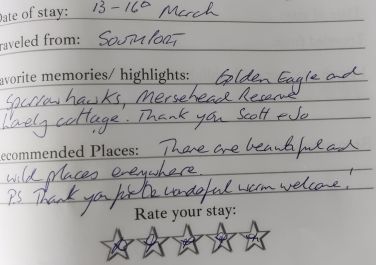 Date of stay: 13-16th March
raveled from: SOUTHPORT
avorite memories/ highlights: Golden Eagle and
Sparrowhawks, Mersehead Reserve
Lovely cottage. Thank you Scott & Jo
ecommended Places: There are beautiful and
wild places everywhere.
PS Thank you for the wonderful warm welcome!
Rate your stay: